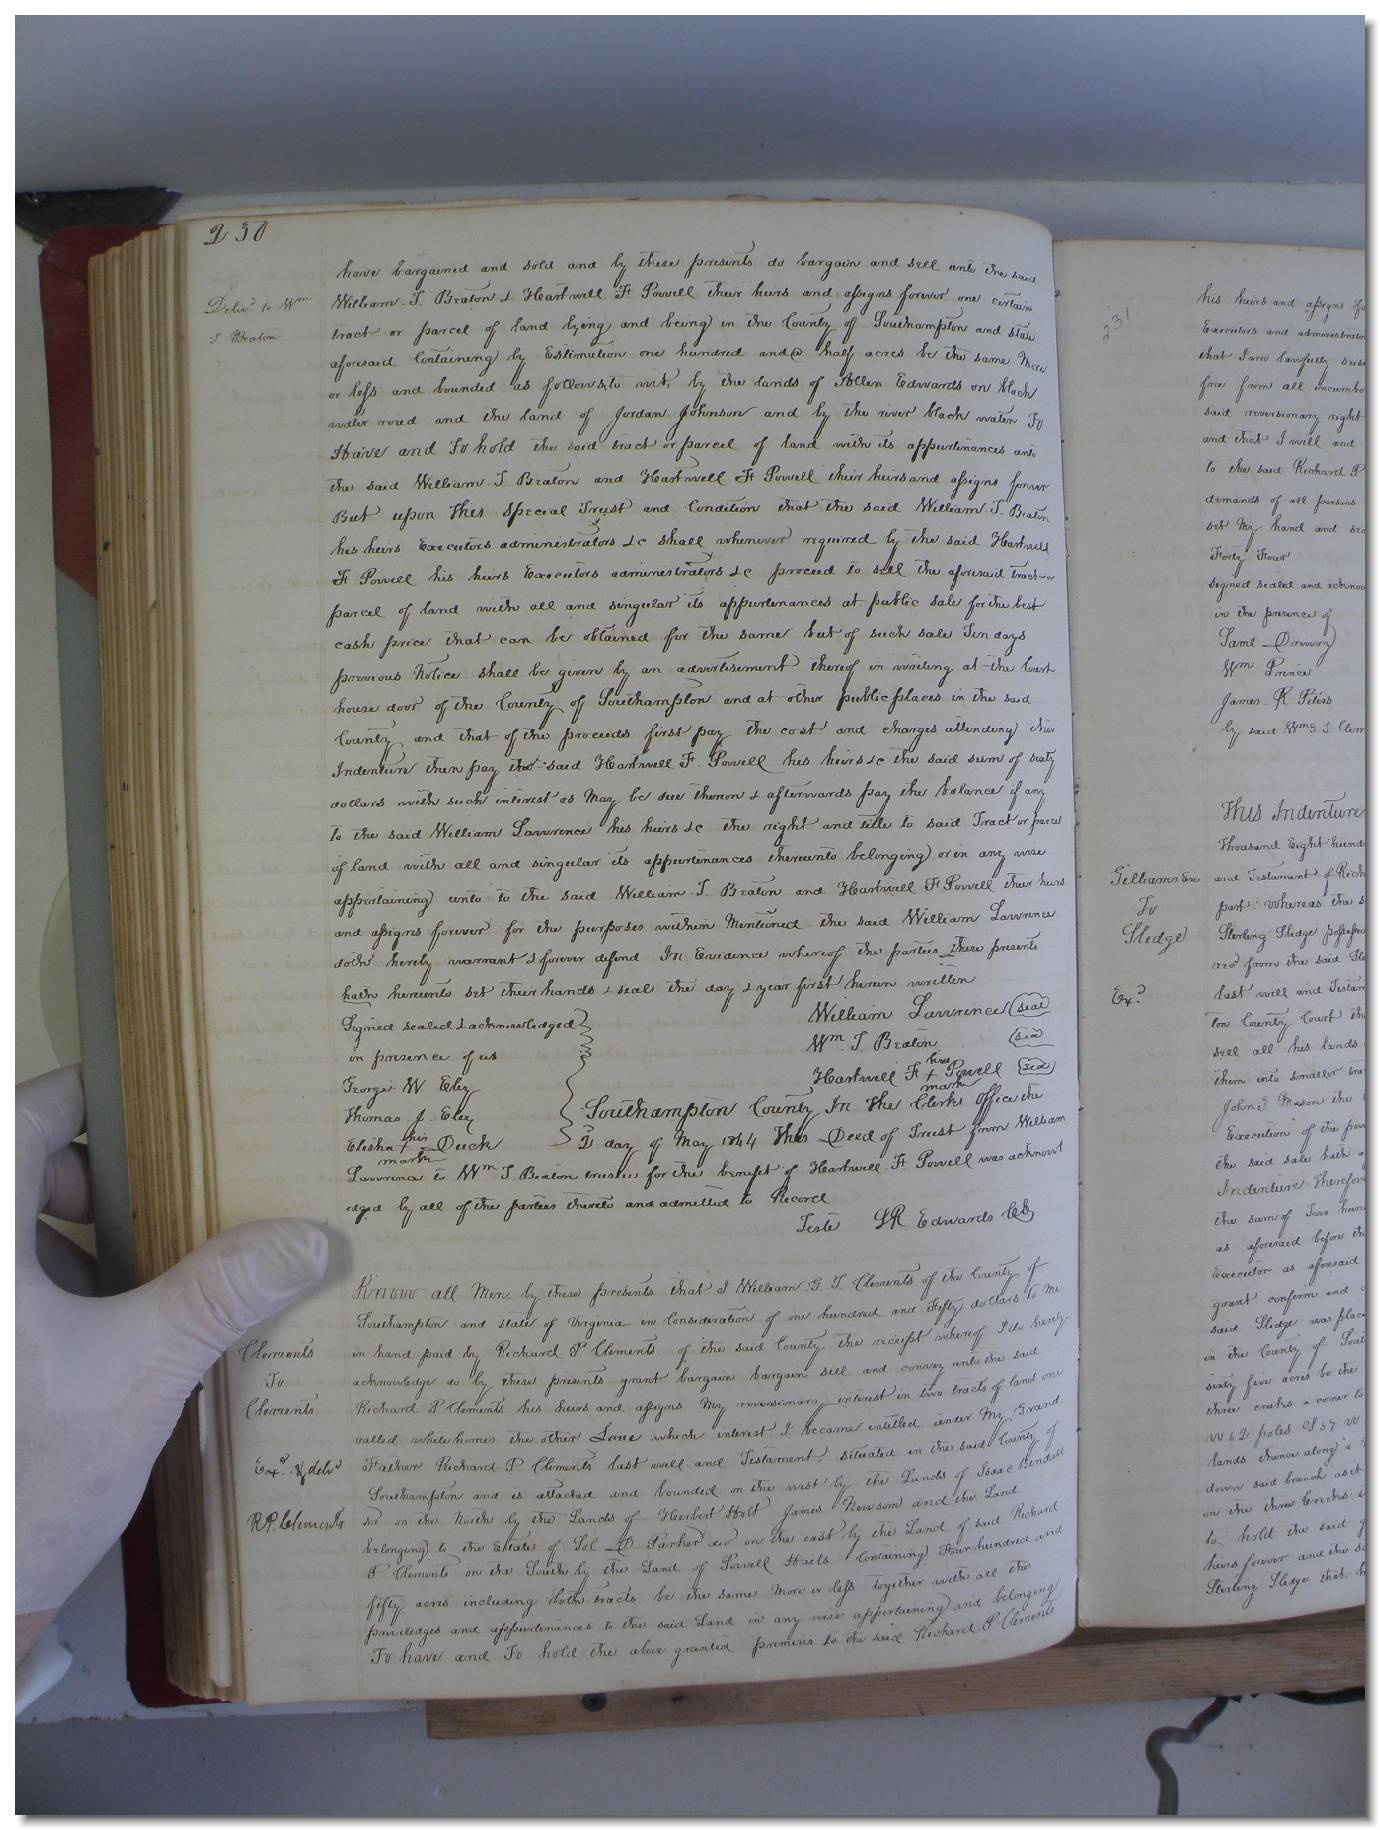 230
Delivd to Wm
T Beaton
have bargained and sold and by these presents do bargain and sell unto the said
William. T. Beaton & Hartwell H Powell their heirs and assigns forever one certain
tract or parcel of land lying and being in the County of Southampton and state
aforesaid Containing by Estimation one hundred and a half acres be the same More
or less and bounded as follows to wit, by the lands of Allen Edwards on black
water road and the land of Jordan Johnson and by the river black water To
Have and To hold the said tract or parcel of land with its appurtenances unto
the said William. T. Beaton and Hartwell H Powell their heirs and assigns forever
But upon this Special Trust and Condition that the said William. T. Beaton
his heirs Executors administrators &c shall whenever required by the said Hartwell
H Powell his heirs Executors administrators &c proceed to sell the aforesaid tract or
parcel of land with all and singular its appurtenances at public sale for the best
cash price that can be obtained for the same but of such sale Ten days
previous Notice shall be given by an advertisement thereof in writing at the Court
house door of the County of Southampton and at other public places in the said
County and that of the proceeds first pay the cost and charges attending this
Indenture then pay the said Hartwell H. Powell his heirs &c the said sum of sixty
dollars with such interest as May be due thereon & afterwards pay the balance if any
to the said William Lawrence his heirs &c the right and title to said Tract or parcel
of land with all and singular its appurtenances thereunto belonging or in any wise
appertaining unto to the said William. T. Beaton and Hartwell H Powell their heirs
and assigns forever for the purposes within Mentioned the said William Lawrence
doth hereby warrant & forever defend In Evidence whereof the parties these presents
hath hereunto set their hands & seals the day & year first herein written
Signed sealed & acknowledged
in presence of us
George. W. Eley
Thomas J. Eley
Elisha his mark Duck
William Lawrence (seal)
Wm. T. Beaton (seal)
Hartwell H his mark Powell (seal)
Southampton County In the Clerks office the
2 day of May 1844 This Deed of Trust from William
Lawrence to Wm T. Beaton trustee for the benefit of Hartwell. H Powell was acknowl
edged by all of the parties thereto and admitted to Record
Teste LR Edwards Clk
Clements
To
Clements
Exd. & delivd
R.P. Clements
Know all Men by these presents that I William G. T. Clements of the County of
Southampton and state of Virginia in Consideration of one hundred and Fifty dollars to Me
in hand paid by Richard. P Clements of the said County the receipt whereof I do hereby
acknowledge do by these presents grant bargain bargain sell and convey unto the said
Richard P Clements his heirs and assigns My reversionary interest in two tracts of land one
called whitehornes the other Lane which interest I became entitled under My Grand
Father Richard. P Clements last will and Testament, situated in the said County of
Southampton and is attached and bounded on the west by the Lands of Isaac
on the North by the Lands of Herbert Holt James Newsom and the Land
belonging to the Estate of Sol D. Parker on the east by the Land of said Richard
P Clements on the South by the Land of Powell Containing Four hundred and
fifty acres including both tracts be the same More or less together with all the
priviledges and appurtenances to the said Land in any wise appertaining and belonging
To have and To hold the above granted premises to the said Richard P Clements
231
his heirs and assigns
Executors and administrator
that I am lawfully
free from all
said reversionary right
and that I will and
to the said Richard P
demands of all persons
set My hand and
Forty Four
signed sealed and
in the presence of
Saml Drewry
Wm Prince
James. R Peters
by said Wm G. T.
This Indenture
Thousand Eight
and Testament of
part: whereas the
Sterling Sledge
from the said
last will and
ton County Court
sell all his lands
them into smaller
John Y. Mason the
Execution of the
the said sale hath
Indenture
the sum of Two
as aforesaid before
Executor as aforesaid
grant confirm and
said Sledge was
in the County of
sixty five acres be the
three a corner to
W 62 poles S 57 W
lands thence along a
down said branch as it
on the three
to hold the said
heirs forever and the
Sterling Sledge that
To
Sledge
Exd.